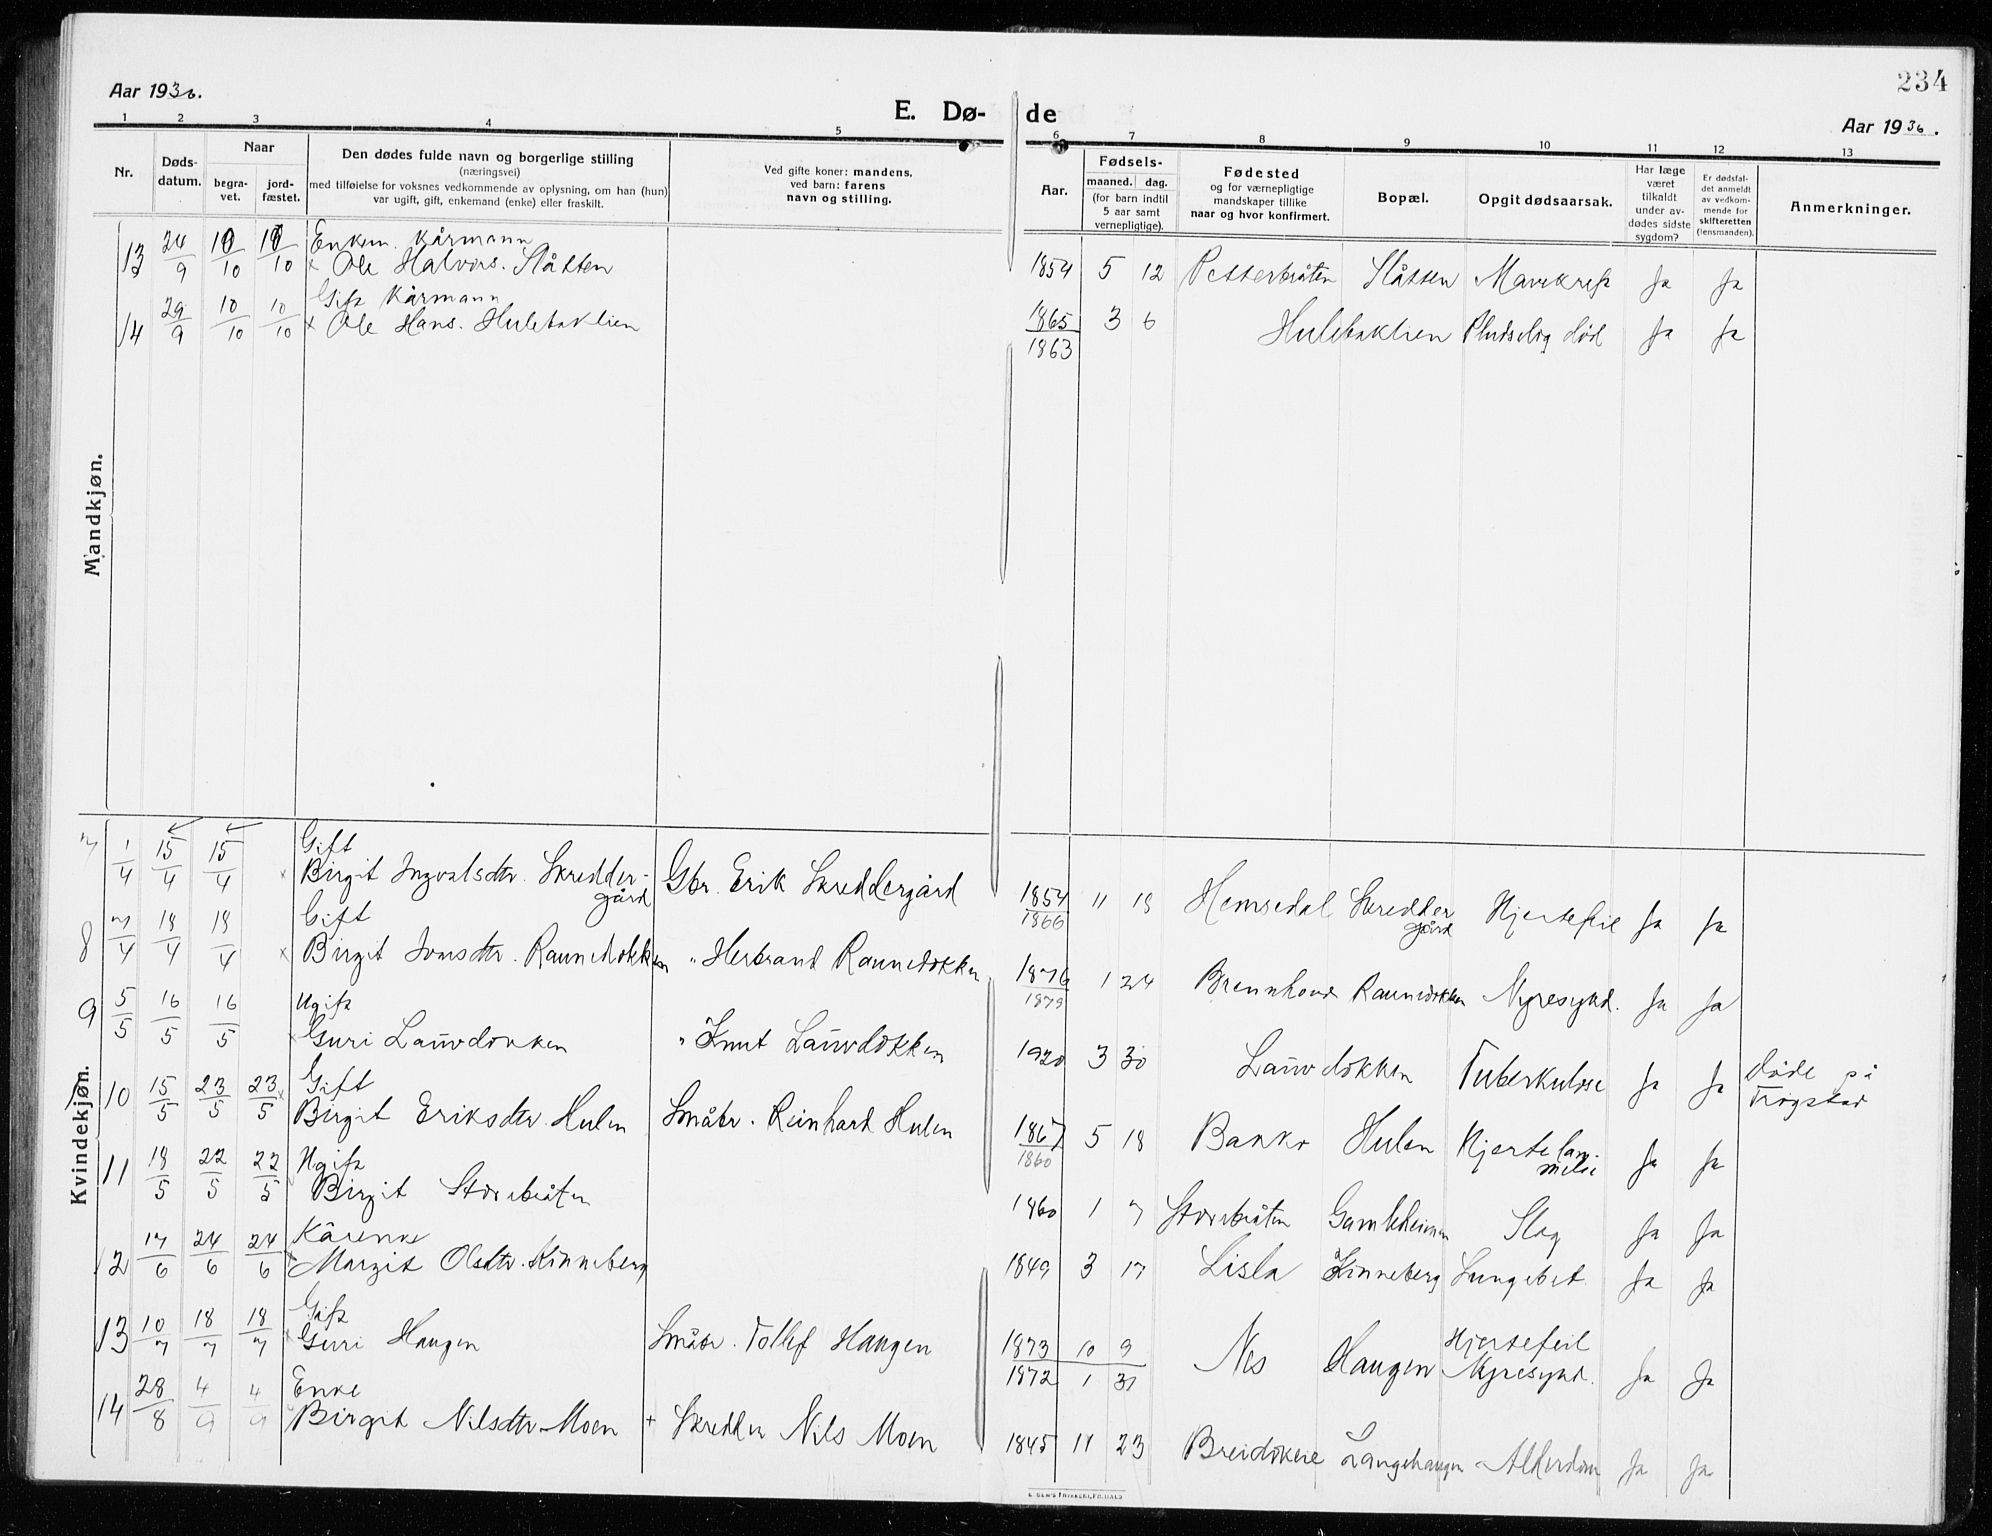 234
Aar 1936.
E. Dø- de
Aar 1936.
1 2 3 4 5 6 7 8 9 10 11 12 13
Nr.
Døds-datum.
Naar
begra-vet.
jord-fæstet.
Den dødes fulde navn og borgerlige stilling
(næringsvei)
med tilføielse for voksnes vedkommende av oplysning, om han (hun)
var ugift, gift, enkemand (enke) eller fraskilt.
Ved gifte koner: mandens,
ved barn: farens
navn og stilling.
Aar.
Fødsels-
maaned. dag.
(for barn indtil
5 aar samt
vernepligtige).
Fødested
og for værnepligtige
mandskaper tillike
naar og hvor konfirmert.
Bopæl.
Opgit dødsaarsak.
Har læge
været
tilkaldt
under av-
dødes sidste
sygdom?
Er dødsfal-
det anmeldt
av vedkom-
mende for
skifteretten
(lensmanden).
Anmerkninger.
Mandkjøn.
13 24/9 10/10 10/10 Enkem. Kårmann
x Ole Halvors. Slåtten 1854 5 12 Petterbråten Slåtten Mavekreft Ja Ja
14 29/9 10/10 10/10 Gift Kårmann
x Ole Hans. Huletaklien 1865 3 6 Huletaklien Pludselig død Ja Ja
1863
Kvindekjøn.
7 1/4 15/4 15/4 Gift
x Birgit Ingvalsdtr. Skredder-
gård Gbr. Erik Skreddergård 1854 11 18 Hemsedal Skredder
gård Hjertefeil Ja Ja
1866
8 7/4 18/4 18/4 Gift
x Birgit Jonsdtr. Raunedokken " Herbrand Raunedokken 1876 1 24 Brennhovd Raunedokken Nyresykd. Ja Ja
1879
9 5/5 16/5 16/5 Ugift
x Guri Lauvdokken " Knut Lauvdokken 1920 3 30 Lauvdokken Tuberkulose Ja Ja Døde på
Trøgstad
10 15/5 23/5 23/5 Gift
x Birgit Eriksdtr. Hulen Småbr. Reinhard Hulen 1867 5 18 Bakko Hulen Hjertelam-
melse Ja Ja
1860
11 18/5 22/5 22/5 Ugift
Birgit Storebråten 1860 1 7 Storebråten Gamleheimen Slag Ja Ja
12 17/6 24/6 24/6 Kårenke
x Margit Olsdtr. Kinneberg 1849 3 17 Lisla Kinneberg Lungebet. Ja Ja
13 10/7 18/7 18/7 Gift
x Guri Haugen Småbr. Tollef Haugen 1873 10 9 Nes Haugen Hjertefeil
Nyresykd. Ja Ja
1872 1 31
14 28/8 4/9 4/9 Enke
Birgit Nilsdtr. Moen + Skredder Nils Moen 1845 11 23 Breidokeie Langehaugen Alderdom Ja Ja